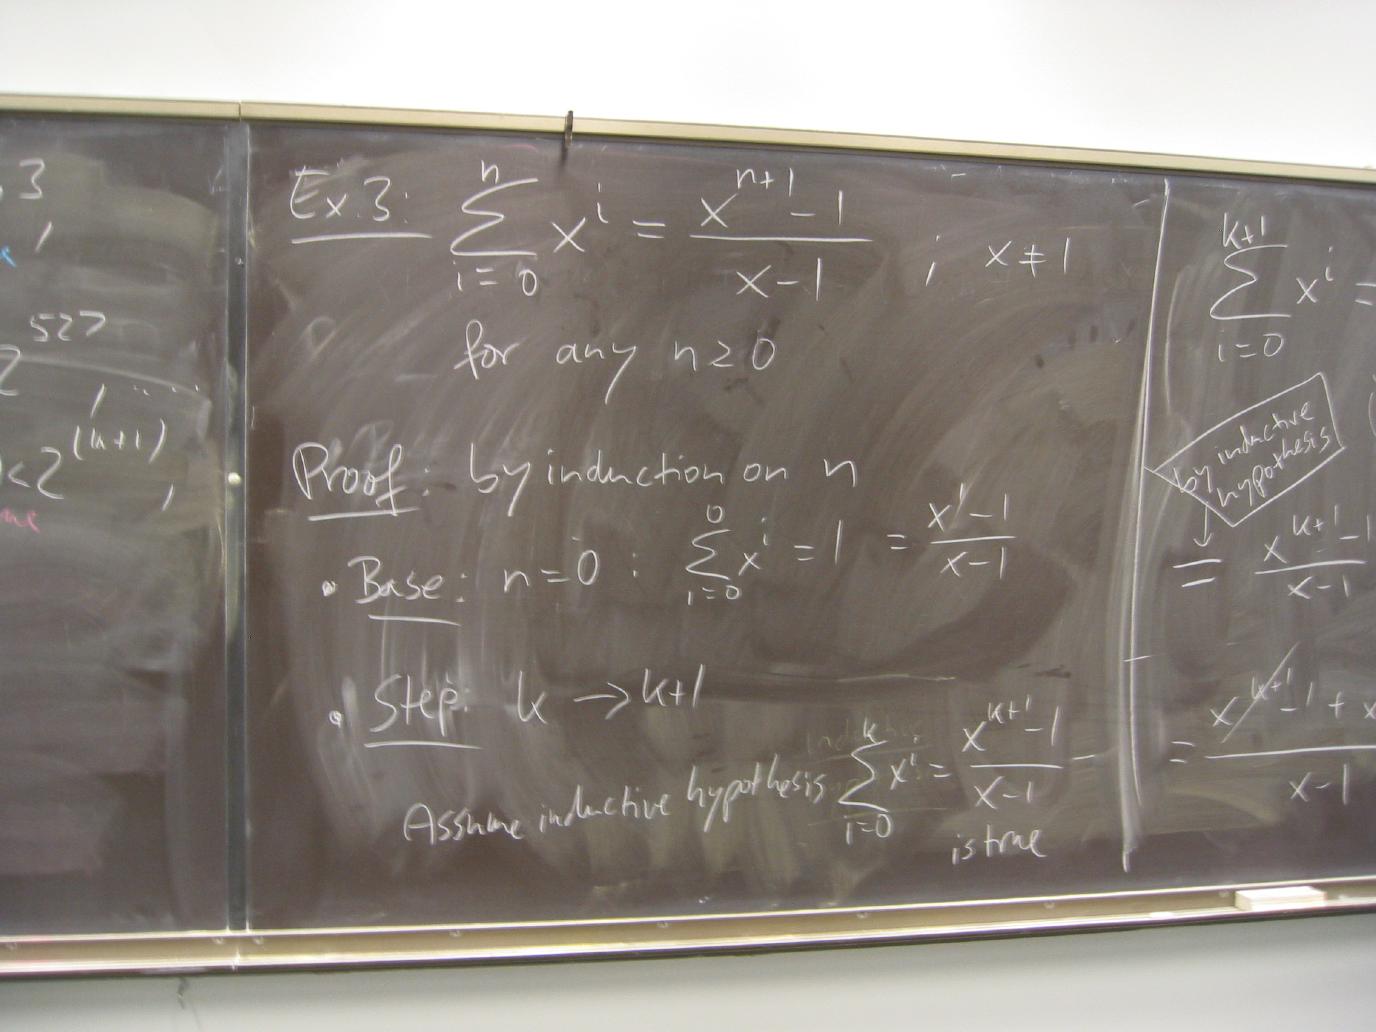 , 3
,
527
2 , ....
<2^(k+1) ,
Ex.3: n∑i=0 x^i = (x^(n+1) - 1)/(x-1) ; x ≠ 1
for any n ≥ 0
Proof: by induction on n
• Base: n=0 : 0∑i=0 x^i = 1 = (x^1 - 1)/(x-1)
• Step: k → k+1
Assume inductive hypothesis k∑i=0 x^i = (x^(k+1) - 1)/(x-1)
is true
k+1∑i=0 x^i =
by inductive
hypothesis
= (x^(k+1) - 1)/(x-1)
= (x^(k+1) - 1 + x)/(x-1)